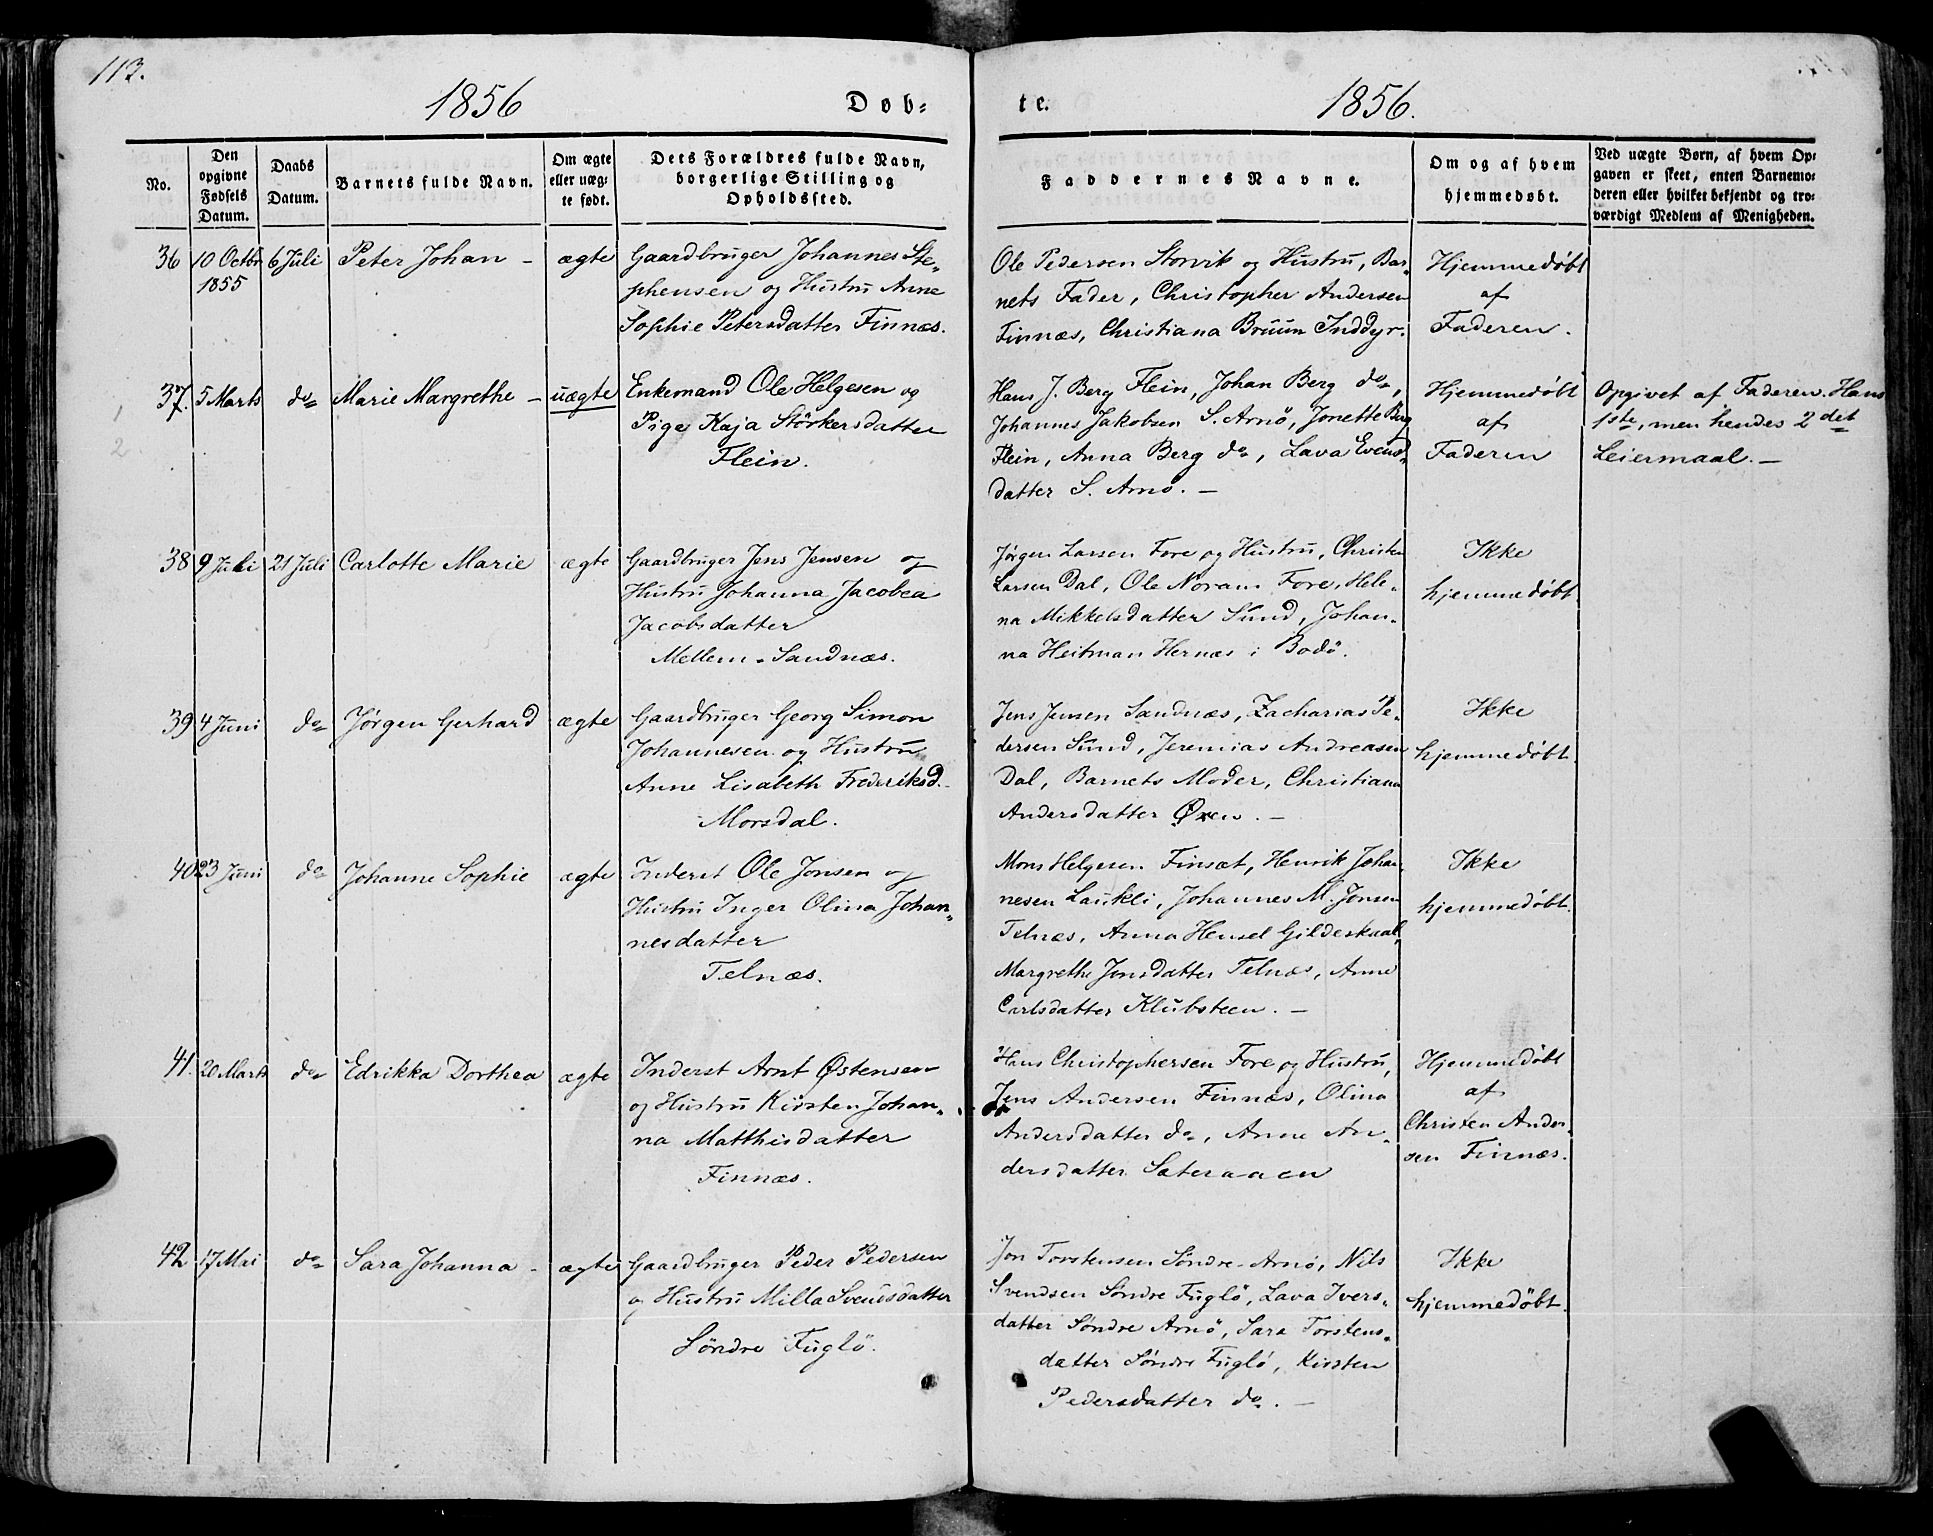 113.
1856
Døb=
te.
1856.
No.
Den opgivne Fødsels Datum.
Daabs Datum.
Barnets fulde Navn.
Om ægte eller uæg= te født.
Dets Forældres fulde Navn, borgerlige Stilling og Opholdssted.
Faddernes Navne.
Om og af hvem hjemmedøbt.
Ved uægte Børn, af hvem Op= gaven er skeet, enten Barnemo= deren eller hvilket bekjendt og tro= værdigt Medlem af Menigheden.
36 10 Octbr 1855
6 Juli
Peter Johan –
ægte
Gaardbruger Johannes Ste=
phensen og Hustru Anne
Sophie Petersdatter Finnæs.
Ole Pedersen Storvik og Hustru, Bar=
nets Fader, Christopher Andersen
Finnæs, Christiana Bruun Inddyr.
Hjemmedøbt
af
Faderen.
1
2
37. 5 Marts
do
Marie Margrethe –
uægte
Enkemand Ole Helgesen og
Pige Kaja Störkersdatter
Flein.
Hans J. Berg Flein, Johan Berg do,
Johannes Jakobsen S. Arnö, Jonette Berg
Flein, Anna Berg do, Lava Evens=
datter S. Arnö. –
Hjemmedöbt
af
Faderen
Opgivet af Faderen. Hans
1ste, men hendes 2det
Leiermaal. –
38 9 Juli
21 Juli
Carlotte Marie
ægte
Gaardbruger Jens Jensen og
Hustru Johanna Jacobea
Jacobsdatter
Mellem-Sandnæs.
Jørgen Larsen Fore og Hustru, Christen
Larsen Dal, Ole Noram Fore, Hele=
na Mikkelsdatter Sund, Johan=
na Heitman Hernæs i Bodö.
Ikke
hjemmedøbt
39 4 Juni
do
Jørgen Gerhard
ægte
Gaardbruger Georg Simon
Johannesen og Hustru
Anne Lisabeth Frederiksd.
Morsdal.
Jens Jensen Sandnæs, Zacharias Pe=
dersen Sund, Jeremias Andreasen
Dal, Barnets Moder, Christiana
Andersdatter Øxen. –
Ikke
hjemmedøbt
40 23 Juni
do
Johanne Sophie
ægte
Inderst Ole Jonsen og
Hustru Inger Olina Johan=
nesdatter
Telnæs.
Mons Helgesen Finsæt, Henrik Johan=
nesen Laukli, Johannes M. Jonsen
Telnæs, Anna Hensel Gildeskaal,
Margrethe Jonsdatter Telnæs, Anne
Carlsdatter Klubsteen. –
Ikke
hjemmedøbt.
41. 20 Marts
do
Edrikka Dorthea
ægte
Inderst Arnt Østensen
og Hustru Kirsten Johan=
na Matthisdatter
Finnæs.
Hans Christophersen Fore og Hustru,
Jens Andersen Finnæs, Olina
Andersdatter do, Anne An=
dersdatter Sæteraaen
Hjemmedøbt
af
Christen Ander=
sen Finnæs.
42 17 Mai
do
Sara Johanna –
ægte
Gaardbruger Peder Pedersen
og Hustru Milla Svendsdatter
Söndre Fuglö.
Jon Torstensen Söndre-Arnö, Nils
Svendsen Söndre Fuglö, Lava Ivers=
datter Söndre Arnö, Sara Torstens=
datter Söndre Fuglö, Kirsten
Pedersdatter do. –
Ikke
hjemmedøbt.